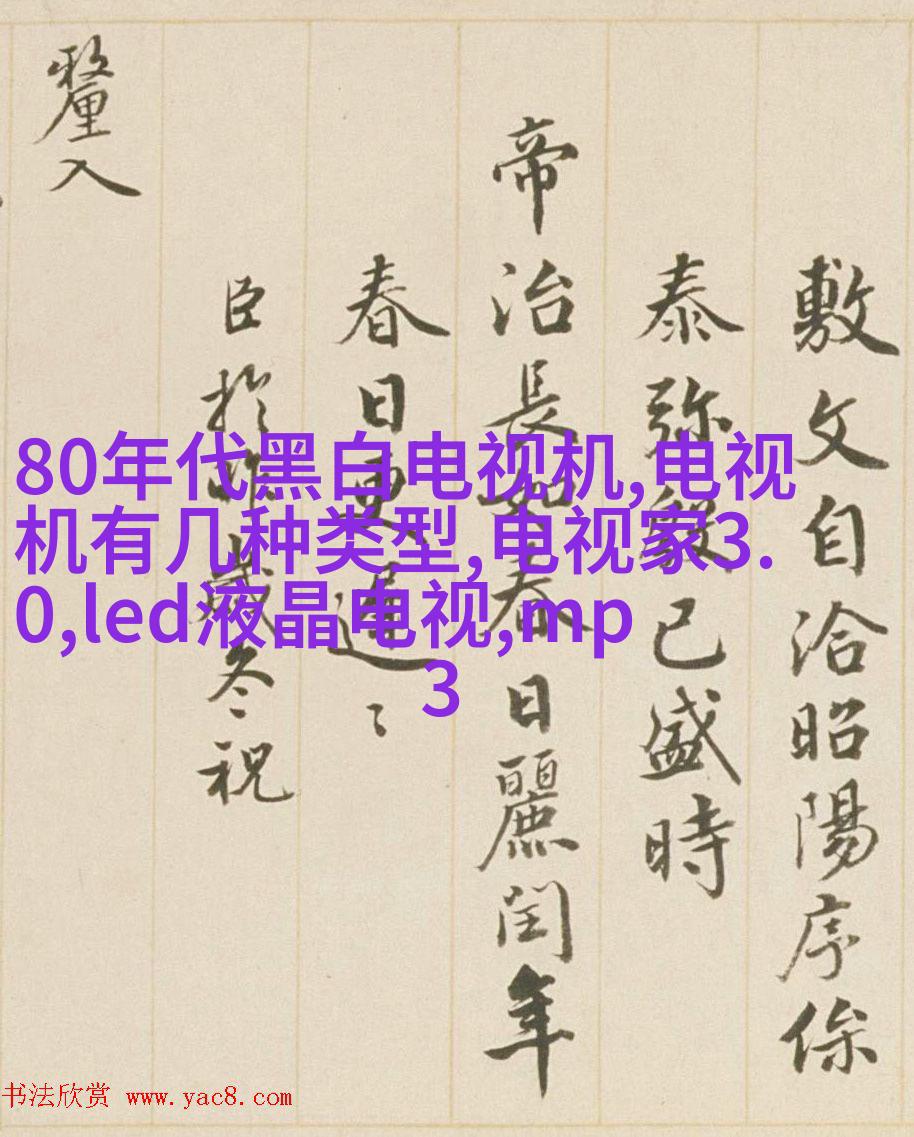 敷文自洽昭陽序
泰弥已盛時
帝治長如春日麗閏年
春日更遲〻
臣於歲冬祝
釐入
80年代黑白电视机,电视
机有几种类型,电视家3.
0,led液晶电视,mp
3
书法欣赏 www.yac8.com